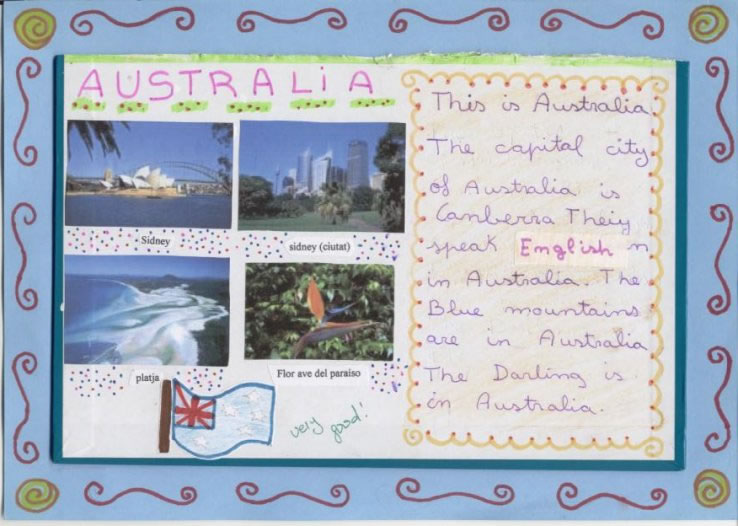 AUSTRALiA
Sidney
sidney (ciutat)
platja
Flor ave del paraiso
very good!
This is Australia
The capital city
of Australia is
Canberra Theiy
speak English n
in Australia. The
Blue mountains
are in Australia
The Darling is
in Australia.